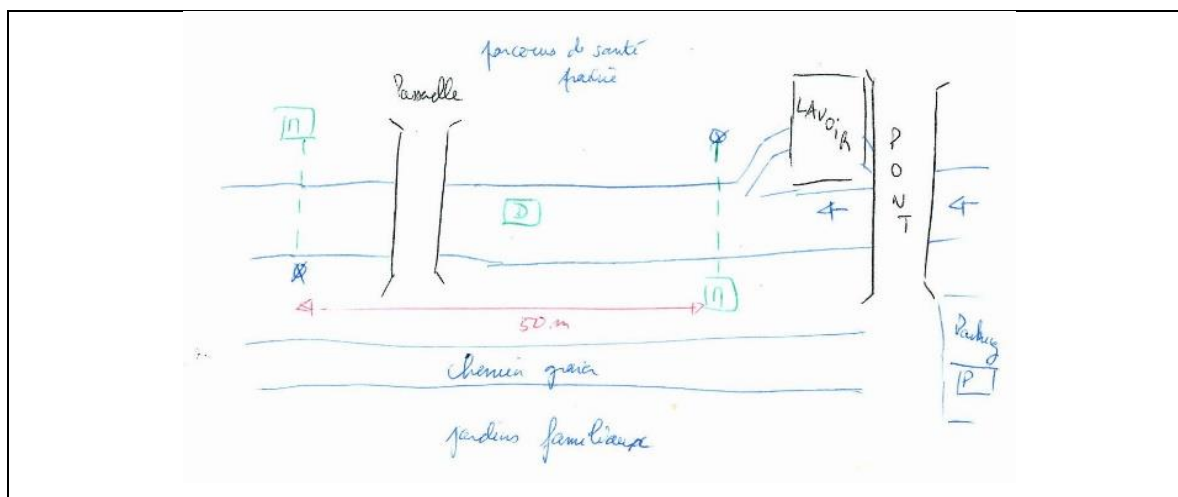 parcours de santé
prairie
Passerelle
LAVOIR
PONT
D
50 m
Parking
P
chemin
jardins familiaux